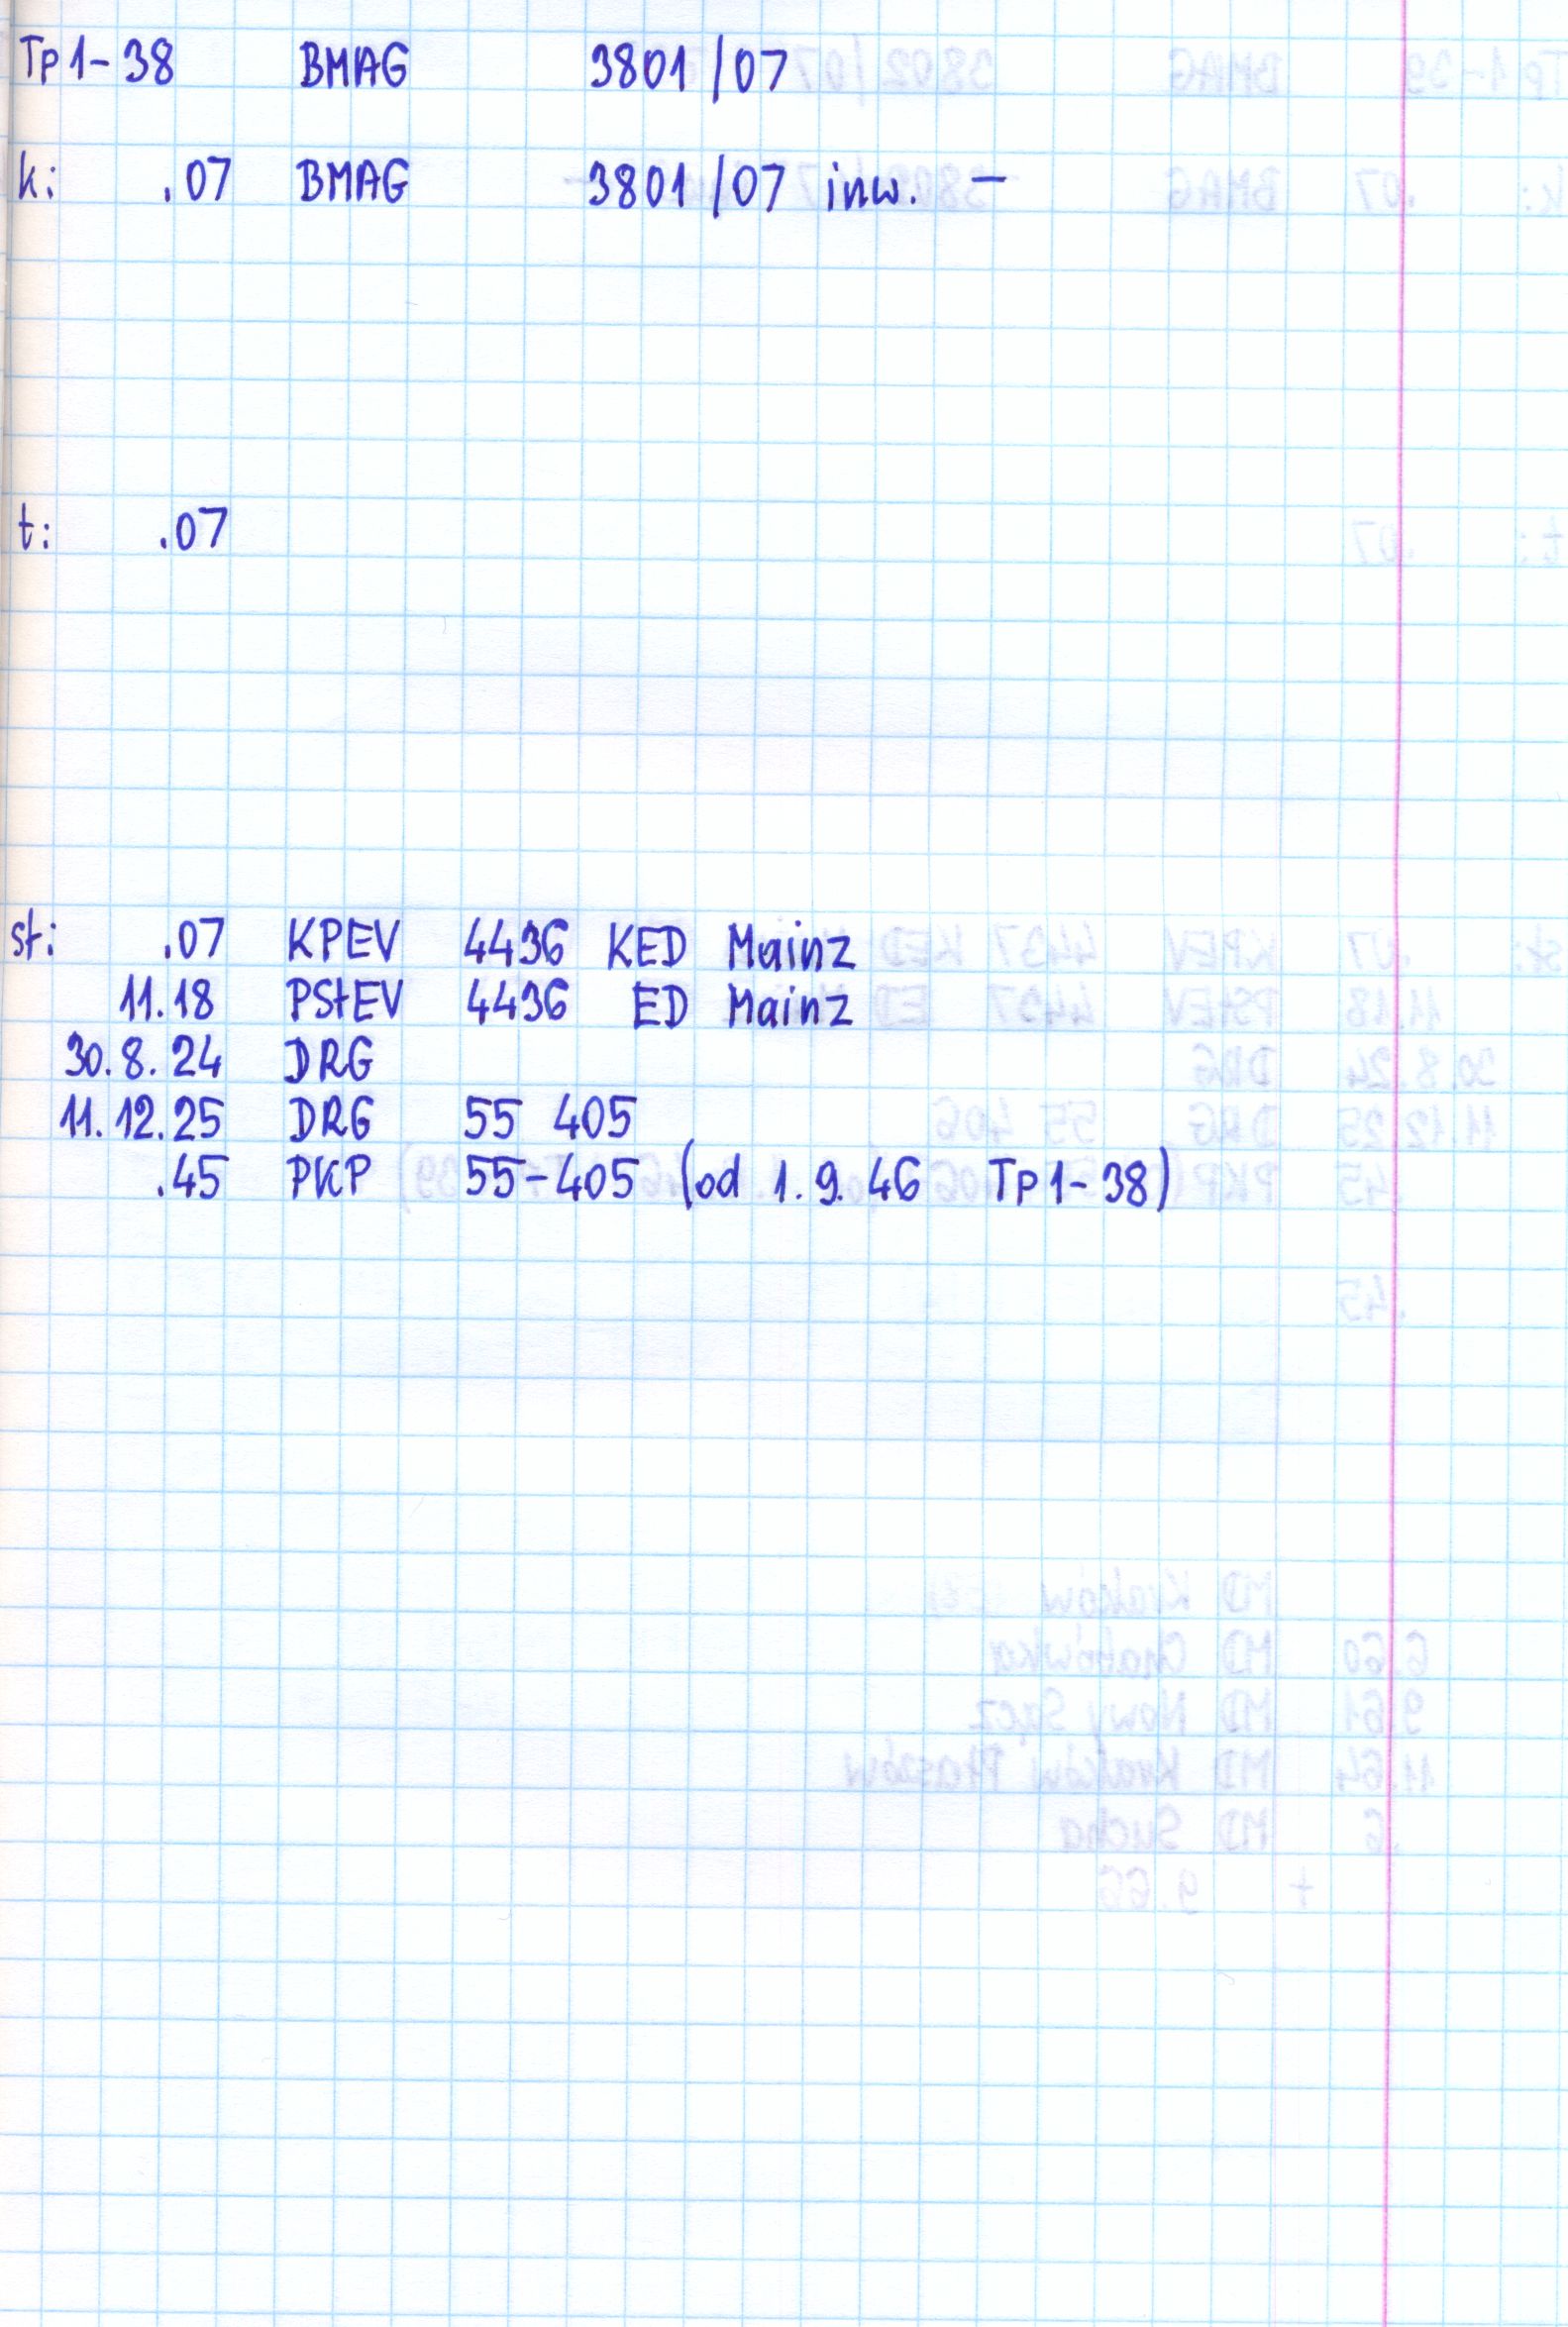 Tp1-38 BMAG 3801/07
k: .07 BMAG 3801/07 inw. –
t: .07
st: .07 KPEV 4436 KED Mainz
11.18 PStEV 4436 ED Mainz
30.8.24 DRG
11.12.25 DRG 55 405
.45 PKP 55-405 (od 1.9.46 Tp1-38)